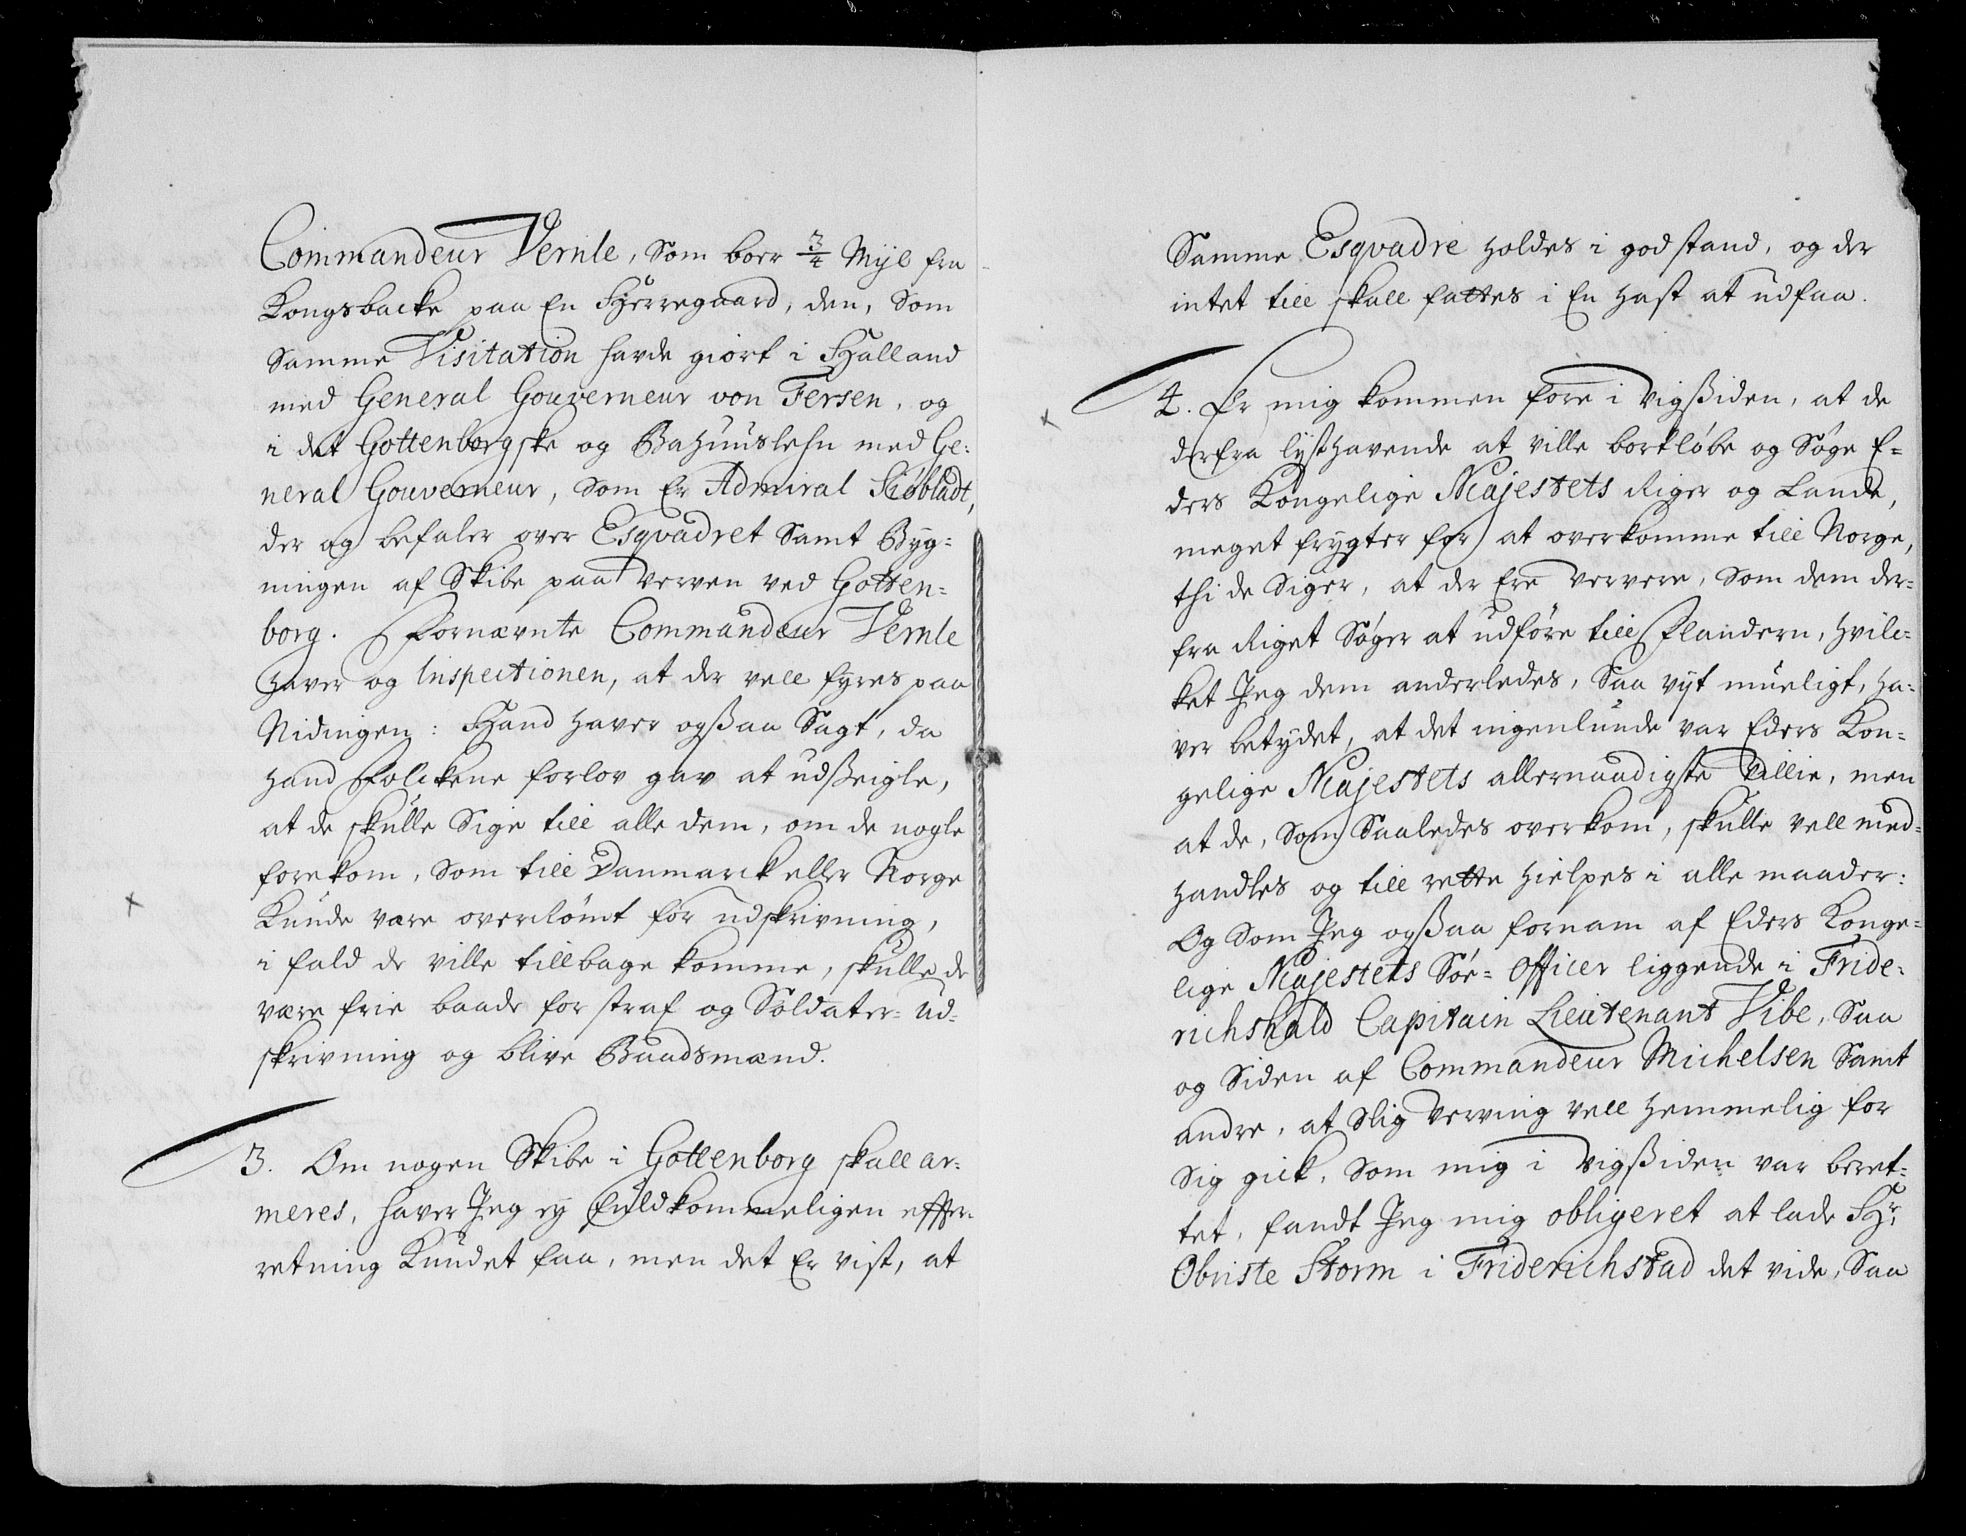 Commandeur Vernle, Som boer 3/4 Mijl fra
Kongsbacke paa En Hierregaard, den, Som
Samme Visitation hafde giort i Halland
med General Gouverneur von Fersen, og
i det Gottenborgske og Bahuuslehn med Ge:
neral Gouverneur, Som Er Admiral Siöbladt,
der og befaler over Esqvadret Samt Byg=
ningen af Skibe paa Verven ved Gotten=
borg. Fornævnte Commandeur Vernle
haver og Inspectionen, at der vell fyres paa
Nidingen: Hand haver ogßaa Sagt, da
hand Folckene forlov gav at udßeigle,
at de skulle Sige till alle dem, om de nogle
forekom, Som till Danmarck eller Norge
Kunde være overlømt for udskrivning,
i fald de ville tillbage komme, skulle de
være frie baade for straf og Soldater= Ud=
skrivning og blive Baadsmænd.
3. Om nogen Skibe i Gottenborg skall ar=
meres, haver Jeg ey fuldkommeligen effter=
retning Kundet faa, men det Er vist, at
Samme Esqvadre holdes i god stand, og der
intet till skall fattes i En hast at udfaa.
4. Er mig kommen fore i Vigßiden, at de
derfra lysthavende at ville bortløbe og Søge E=
ders Kongelige Majestets Riger og Lande,
meget frygter for at overkomme till Norge,
thi de Siger, at der Ere Ververe, Som dem der=
fra Riget Søger at udföre till Flandern, hvil=
ket Jeg dem anderledes, Saa vijt mueligt, ha=
ver betydet, at det ingenlunde var Eders Kon=
gelige Majestets allernaadigste Villie, men
at de, Som Saaledes overkom, skulle vell med=
handles og till rette hielpes i alle maader:
Og Som Jeg ogßaa fornam af Eders Konge=
lige Majestets Söe= Officer liggende i Fride=
richshald Capitain Lieutenant Vibe, Saa
og Siden af Commandeur Michelsen Samt
andre, at Slig Verving vell hemmelig for
Sig gick, Som mig i Vigßiden var beret=
tet, fandt Jeg mig obligeret at lade Hr.
Obriste Storm i Friderichstad det vide, Saa